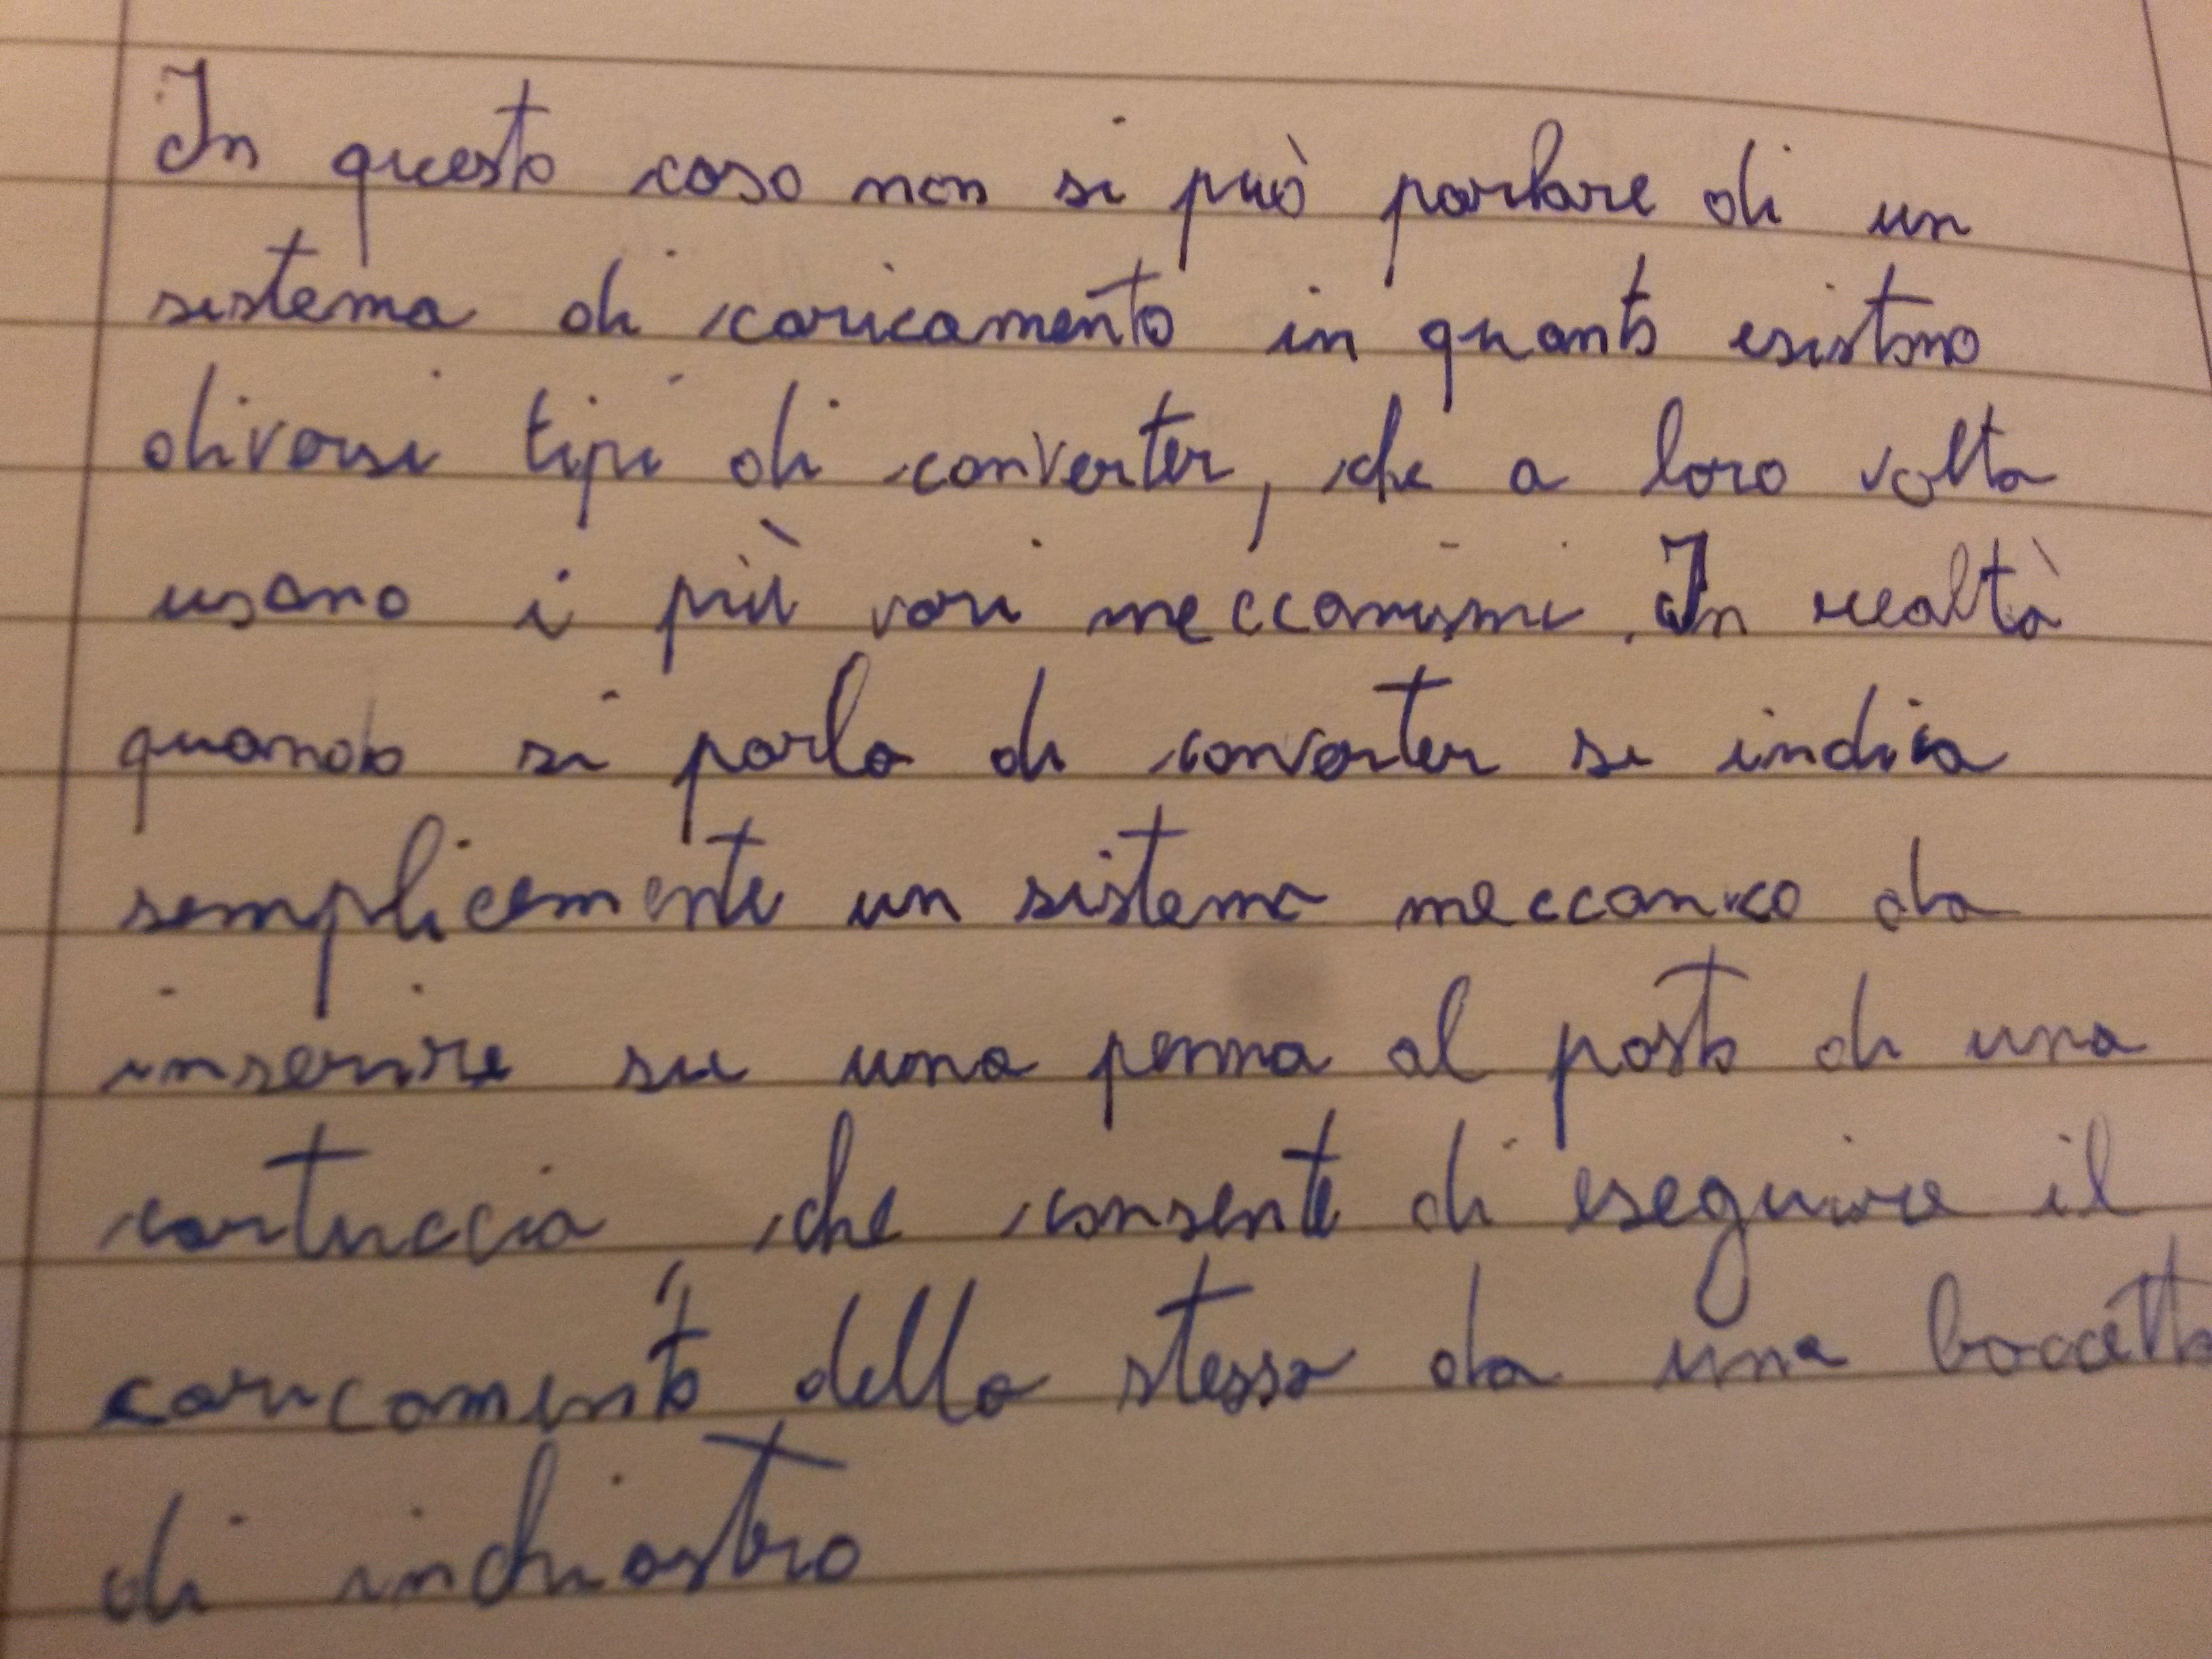 In questo caso non si può parlare di un
sistema di caricamento in quanto esistono
diversi tipi di converter, che a loro volta
usano i più vari meccanismi. In realtà
quando si parla di converter si indica
semplicemente un sistema meccanico da
inserire su una penna al posto di una
cartuccia, che consente di eseguire il
caricamento della stessa da una boccetta
di inchiostro